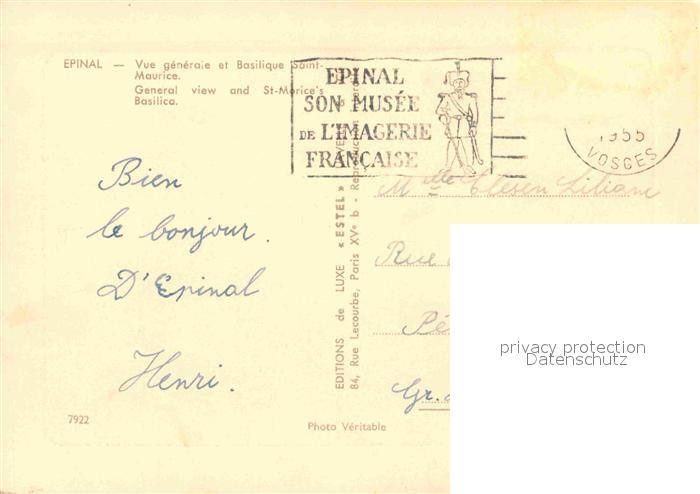 EPINAL — Vue générale et Basilique Saint-
Maurice.
General view and St-Morice's
Basilica.
EPINAL
SON MUSÉE
DE L'IMAGERIE
FRANÇAISE
1955
VOSGES
Bien
le bonjour.
D'Epinal
Henri.
EDITIONS de LUXE « ESTEL »
84, Rue Lecourbe, Paris XVe b - Reproduction
Mlle Clesen Liliane
Rue
Pé
Gr.
privacy protection
Datenschutz
7922
Photo Véritable